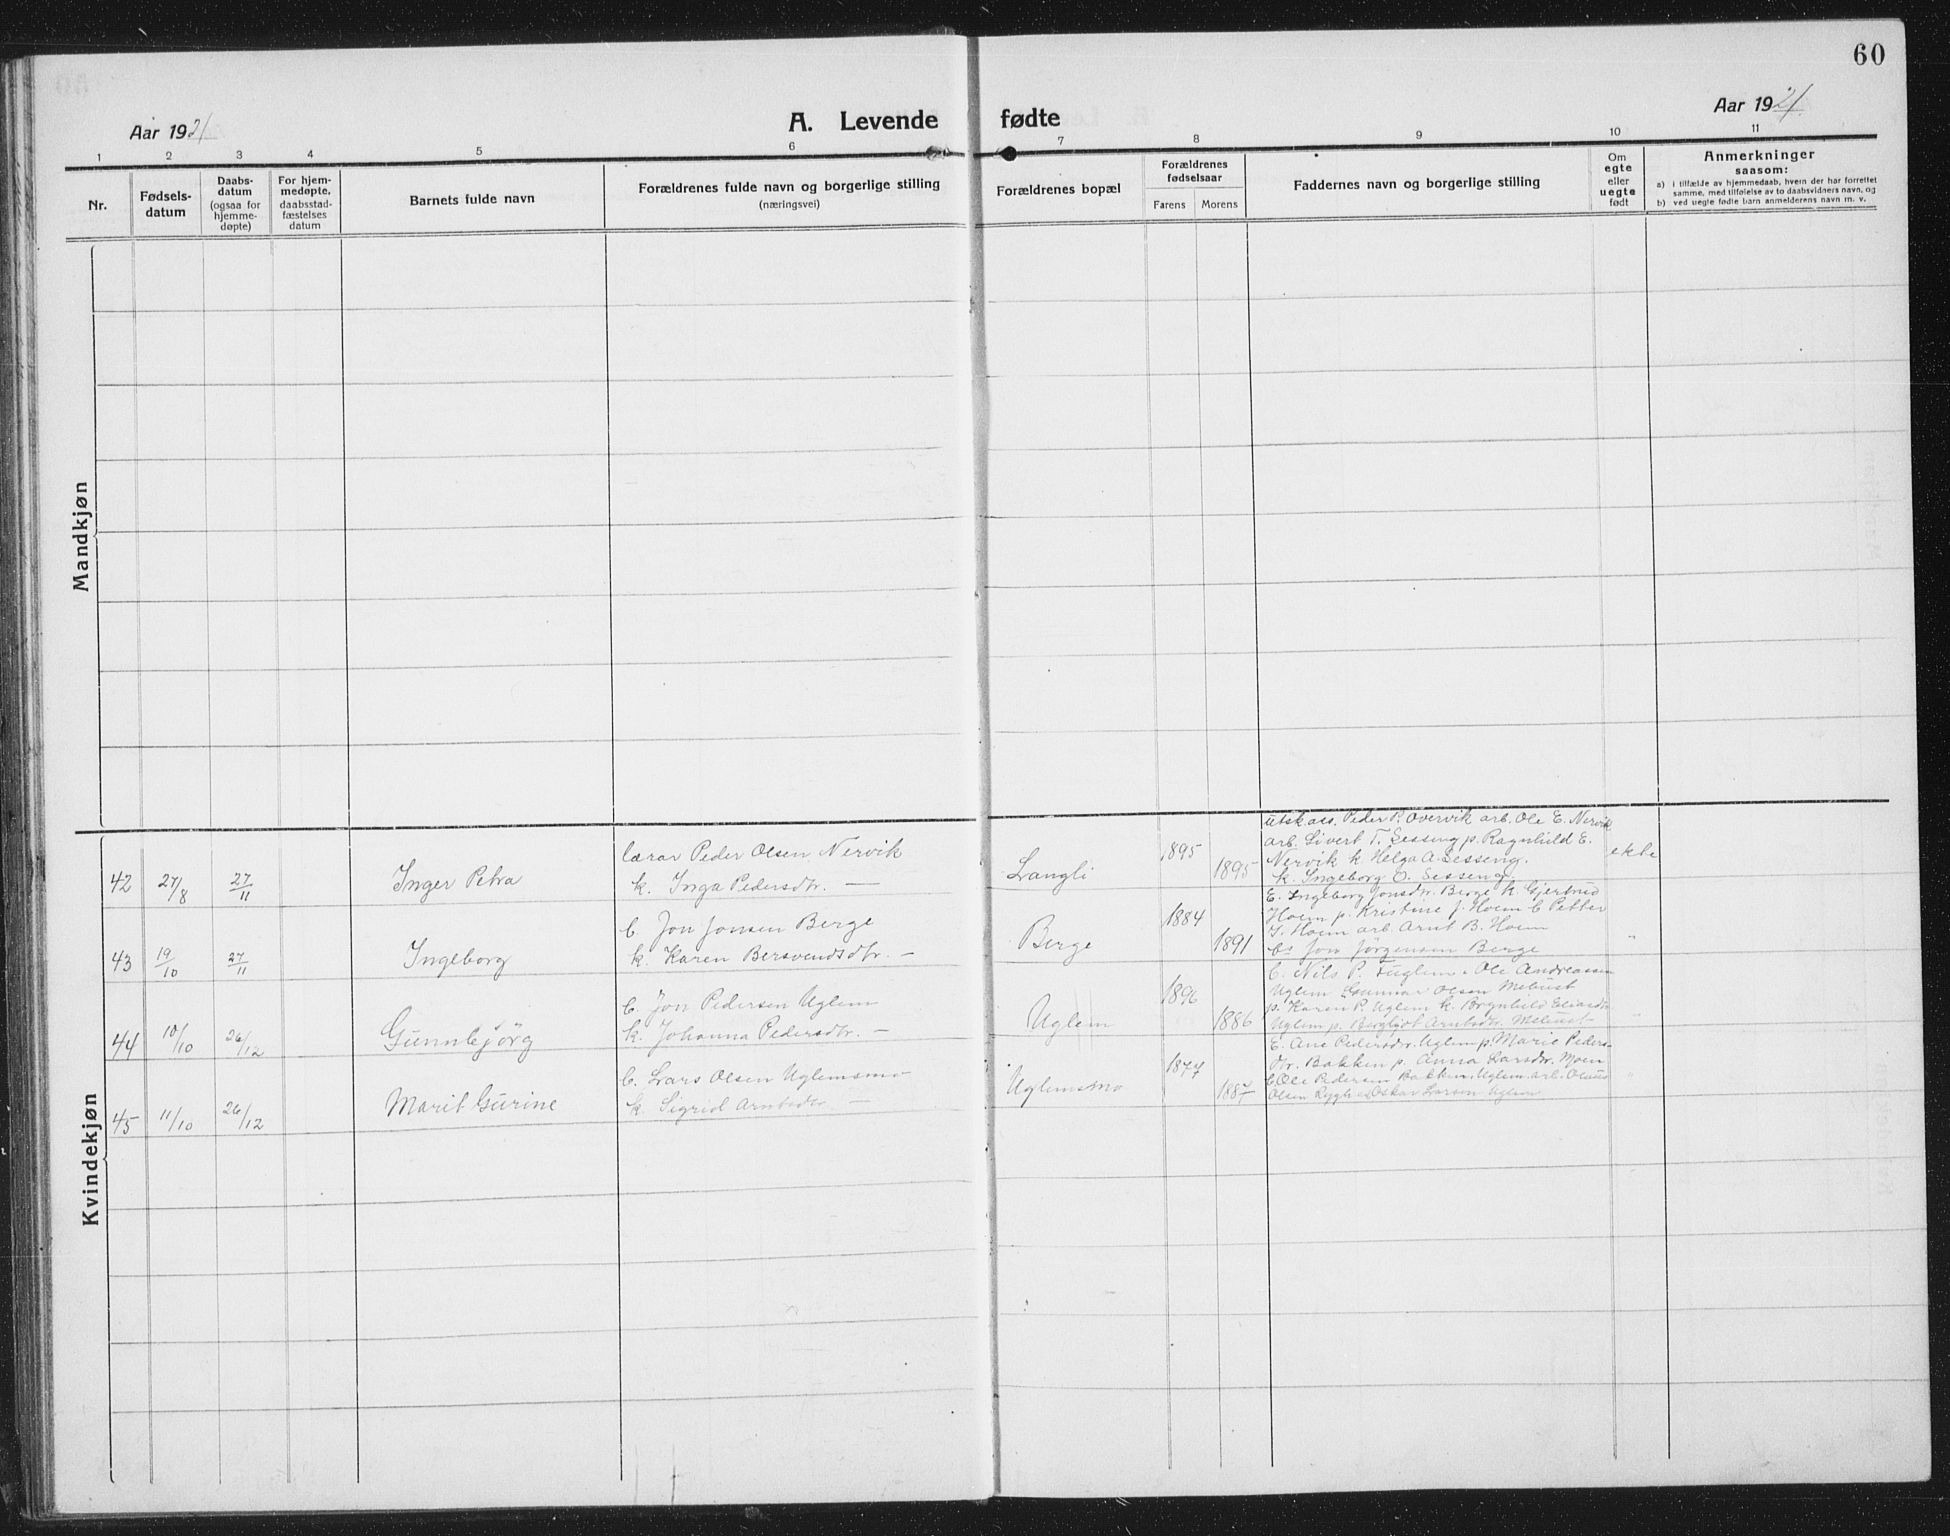 60
Aar 1921
A. Levende
fødte
Aar 1921
1 2 3 4 5 6 7 8 9 10 11
Nr.
Fødsels-
datum
Daabs-
datum
(ogsaa for
hjemme-
døpte)
For hjem-
medøpte,
daabsstad-
fæstelses
datum
Barnets fulde navn
Forældrenes fulde navn og borgerlige stilling
(næringsvei)
Forældrenes bopæl
Forældrenes
fødselsaar
Farens Morens
Faddernes navn og borgerlige stilling
Om
egte
eller
uegte
født
Anmerkninger
saasom:
a) i tilfælde av hjemmedaab, hvem der har forrettet
samme, med tilføielse av to daabsvidners navn, og
b) ved uegte fødte barn anmelderens navn m. v.
Mandkjøn
Kvindekjøn
42 27/8 27/11 Inger Petra
lærar Peder Olsen Nervik
k. Inga Pedersdtr. —
Langli 1895 1895
utsk.ass. Peder P. Overvik arb. Ole E. Nervik
arb. Sivert T. Sesseng p. Ragnhild E.
Nervik k. Helga A. Sesseng.
k. Ingeborg O. Sesseng.
ekte
43 19/10 27/11 Ingeborg
b. Jon Jonsen Berge
k. Karen Bersvendsdtr. —
Berge 1884 1891
E. Ingeborg Jonsdtr. Berge k. Gjertrud
Hoem p. Kristine J. Hoem b. Petter
J. Hoem arb. Arnt B. Hoem
bs Jon Jørgensen Berge
"
44 10/10 26/12 Gunnbjörg
b. Jon Pedersen Uglem
k. Johanna Pedersdtr. —
Uglem 1896 1886
b. Nils P. Fuglem. Ole Andreassen
Uglem Gunnar Olsen Mebust
p. Karen P. Uglem k. Borgnhild
Uglem p. Bergljot Arntsdtr. Mebust
"
45 11/10 26/12 Marit Gurine
b. Lars Olsen Uglemsmo
k. Sigrid Arntsdtr —
Uglemsmo 1877 1887
E. Ane Pedersdtr. Uglem p. Marie Peders-
dtr. Bakken p. Anna Larsdtr. Moen
b. Ole Pedersen Bakken, Uglem arb. Olaus
Olsen Oskar Larsen Uglem
"